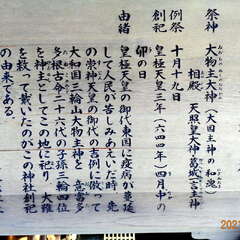 祭神
大物主大神(大国主神の和魂)
相殿 天照皇大神 葛城一言主神
例祭
十月十九日
創祀
皇極天皇三年(六四四年)四月中の
卯の日
由緒
皇極天皇の御代東国に疫病が蔓延
して人民が苦しみあえいだ時、先
の崇神天皇の御代の吉例に倣て
大和国三輪山大物主大神を 意富多
多根古命二十六代の子孫三輪四位
を神主としてこの地に祀り 大難
を救って戴いたのがこの神社創祀
の由来である。
202